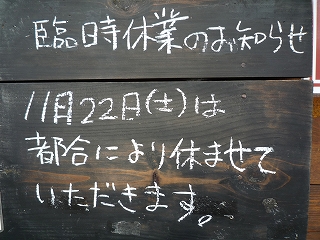 臨時休業のお知らせ
11月22日(土)は
都合により休ませて
いただきます。